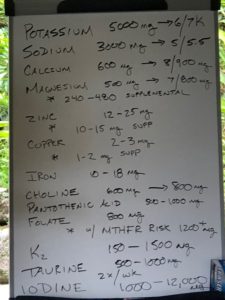 POTASSIUM 5000 mg → 6/7K
SODIUM 3000 mg → 5/5.5
CALCIUM 600 mg → 8/900 mg
MAGNESIUM 500 mg → 7/800 mg
* 240-480 SUPPLEMENTAL
ZINC 12-25 mg
* 10-15 mg SUPP
COPPER 2-3 mg
* 1-2 mg SUPP
IRON 10-18 mg
CHOLINE 600 mg → 800 mg
PANTOTHENIC ACID 500-1000 mg
FOLATE 800 mg
* w/ MTHFR RISK 1200+ mg
K2 150-1500 mg
TAURINE 500-1000 mg
2x/wk
IODINE 1000-12,000 mg